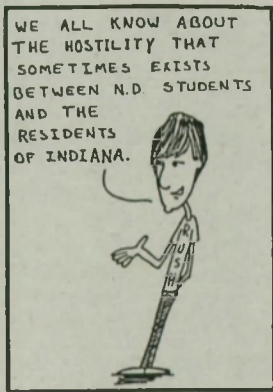 WE ALL KNOW ABOUT
THE HOSTILITY THAT
SOMETIMES EXISTS
BETWEEN N.D. STUDENTS
AND THE
RESIDENTS
OF INDIANA.
RUSH